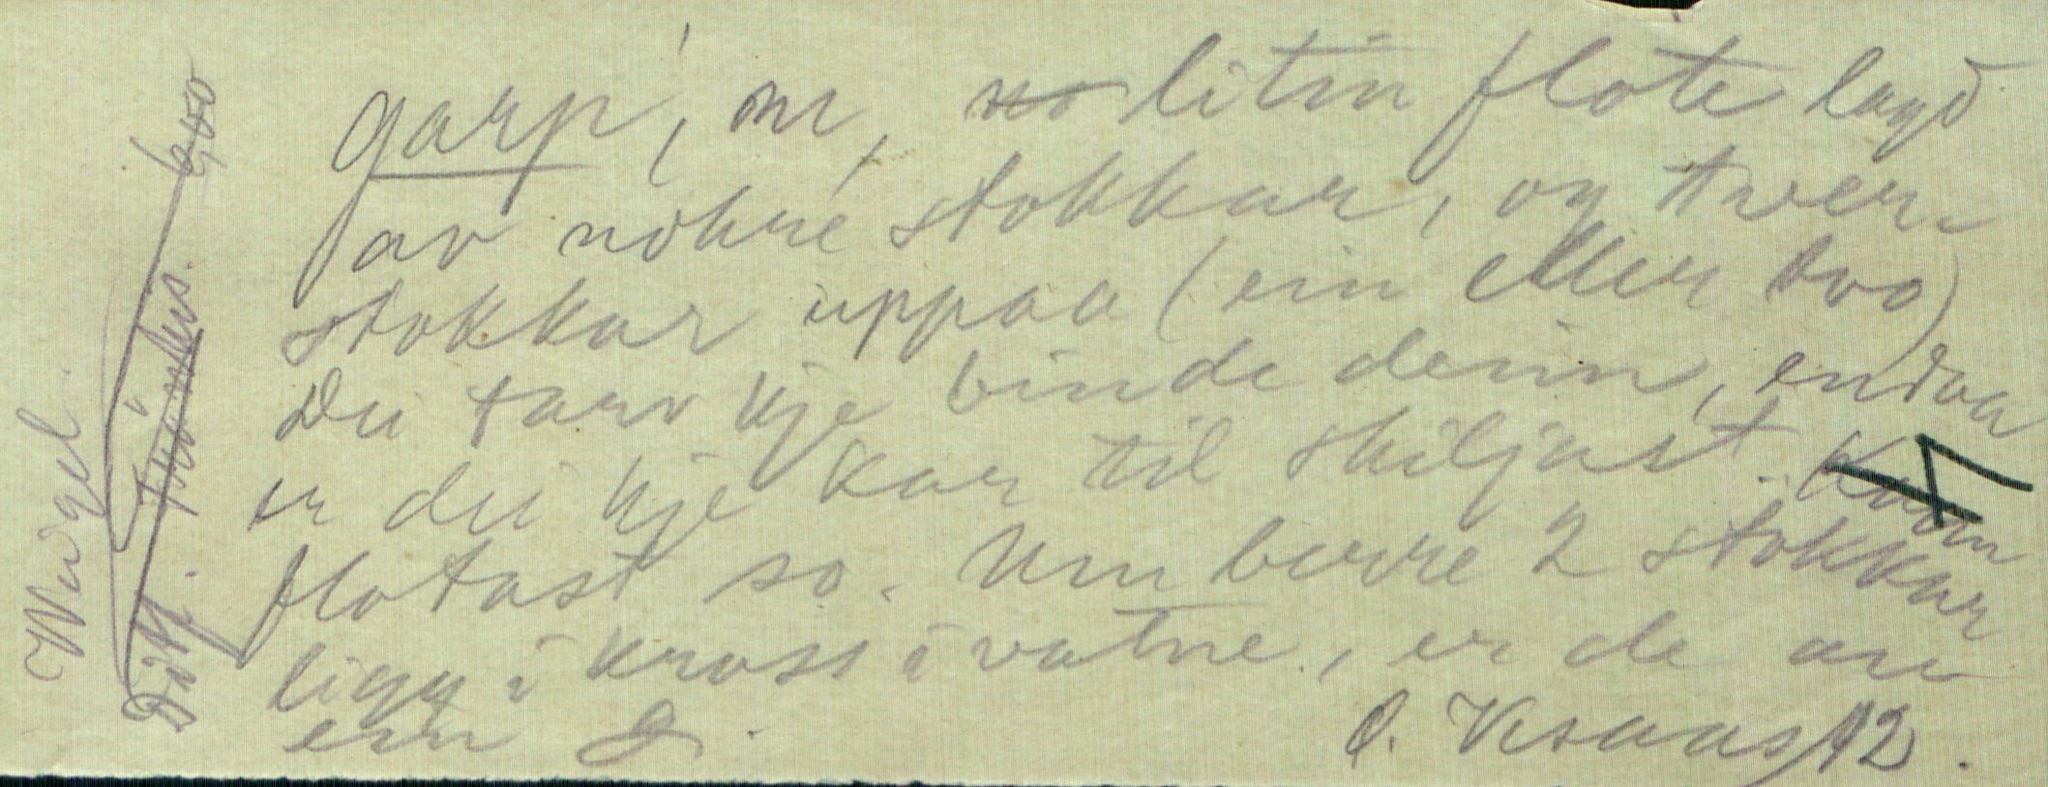 garp', m, no litin flote lagd
av nokre stokkar, og tver-
stokkar uppaa (ein eller tvo)
Dei tarv kje binde deim, endaa
er dei kje kar til skiljast. Kaan
flotast so. Um berre 2 stokkar
ligg i kross i vatne, er de au
ein g.
O. Vesaas 12.
Wergel.